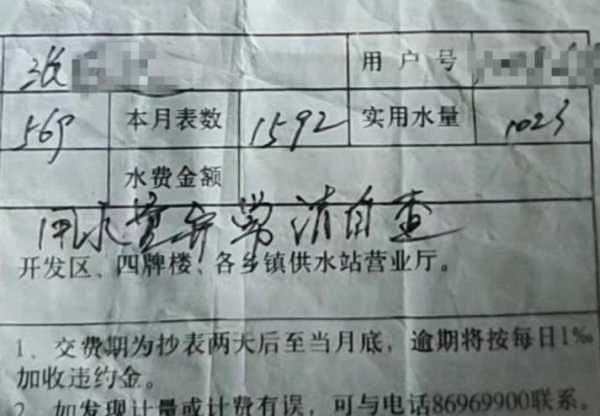 张 用户号
569 本月表数 1592 实用水量 1023
水费金额
用水量异常请自查
开发区、四牌楼、各乡镇供水站营业厅。
1．交费期为抄表两天后至当月底，逾期将按每日1‰
加收违约金。
2．如发现计量或计费有误，可与电话86969900联系。